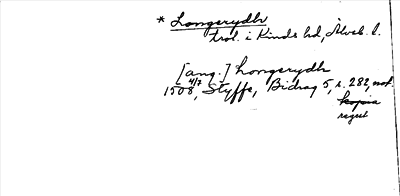 * Longerydh
trol. i Kinds hd, Älvsb. l.
[ang.] Longerydh
1508 4/7, Styffe, Bidrag 5, s. 282, not.
kopia
regest